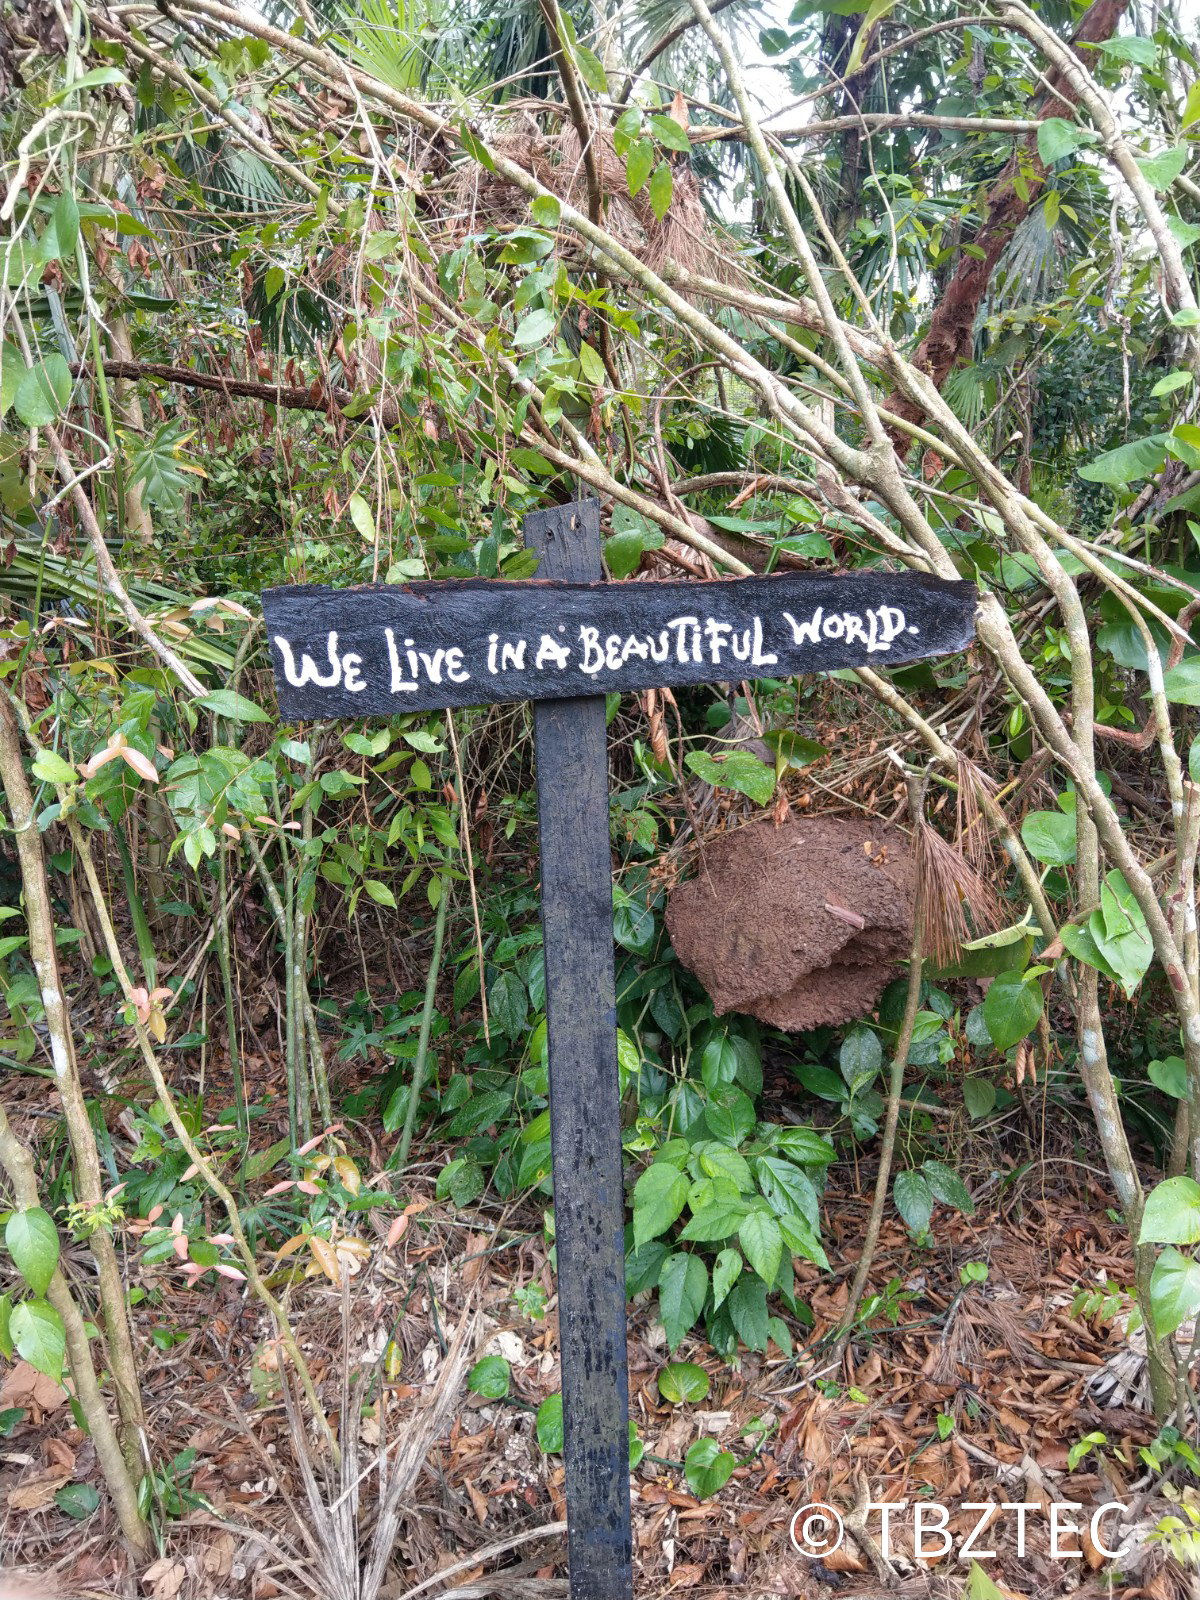 We Live in A BEAUTiFUL WORLD.
© TBZTEC